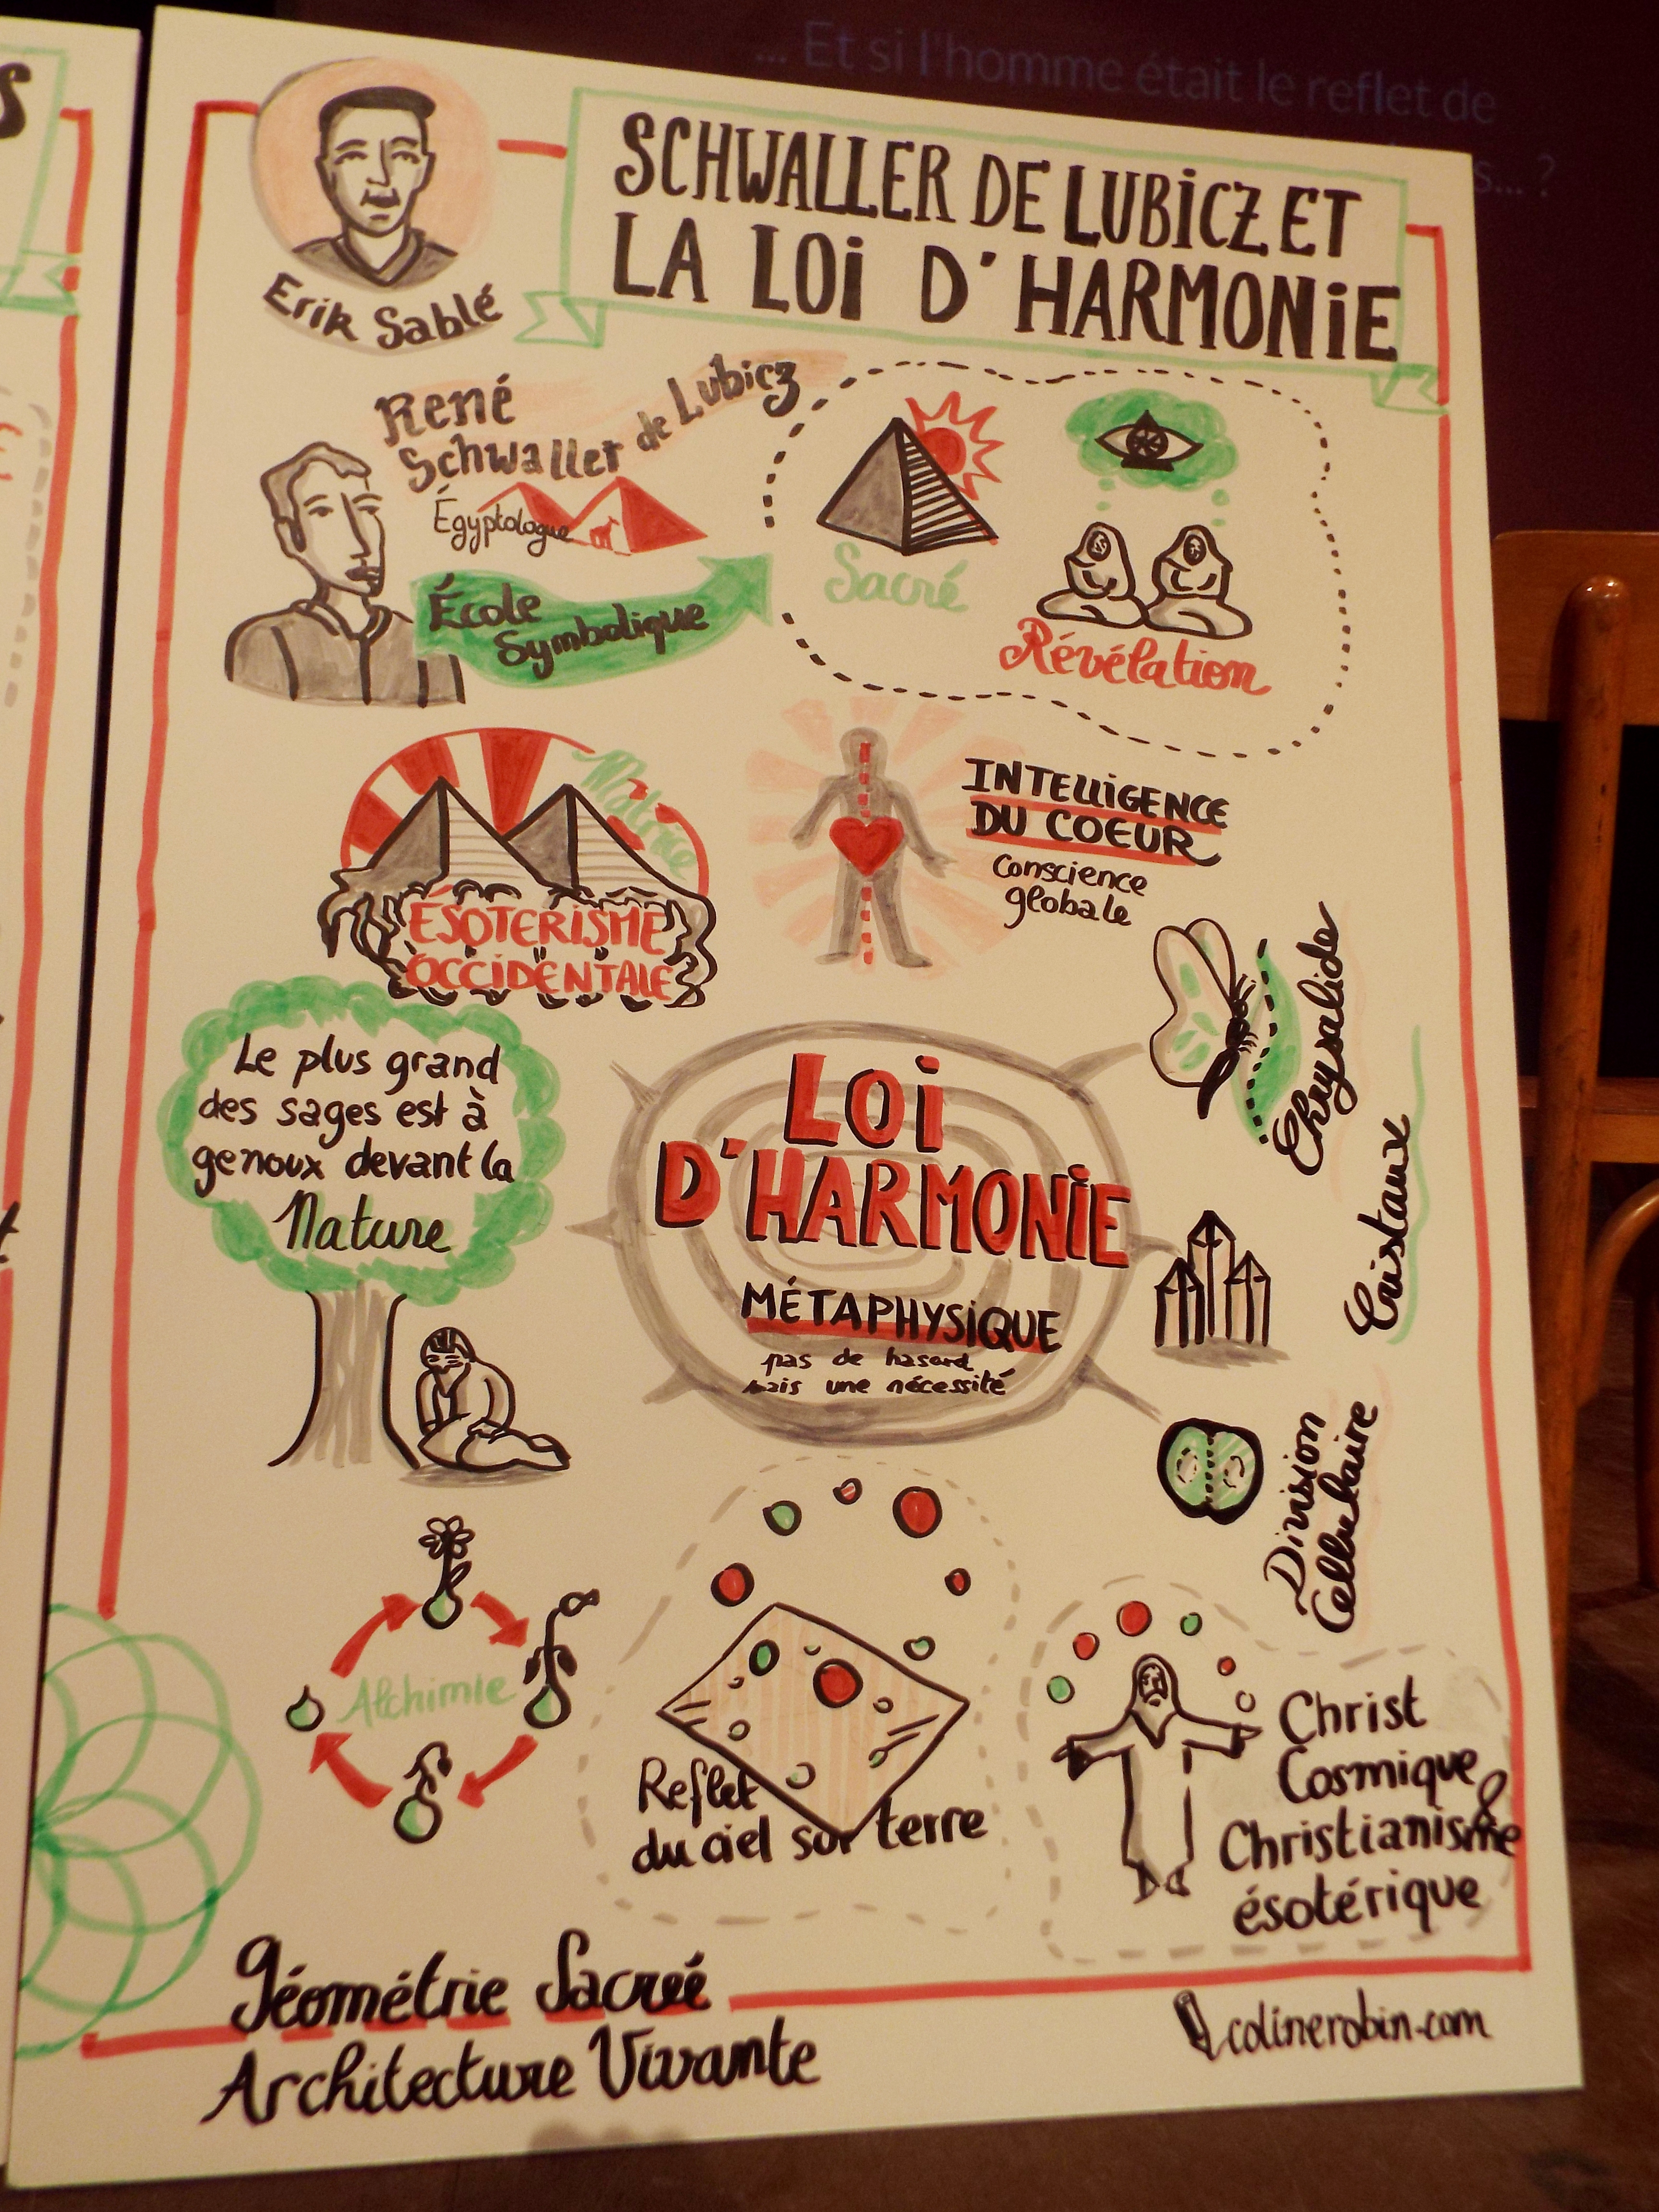 ... Et si l'homme était le reflet de
s... ?
S
SCHWALLER DE LUBiCZ ET
LA LOi D'HARMONiE
Erik Sablé
René
Schwaller de Lubicz
Égyptologue
École
Symbolique
Sacré
Révélation
Matrice
ÉSOTERISME
OCCIDENTALE
INTELLIGENCE
DU COEUR
Conscience
globale
Le plus grand
des sages est à
genoux devant la
Nature
LOi
D'HARMONiE
MÉTAPHYSiQUE
pas de hasard
mais une nécessité
Chrysalide
Cristaux
Division
Cellulaire
Alchimie
Reflet
du ciel sur terre
Christ
Cosmique &
Christianisme
ésotérique
Géométrie Sacrée
Architecture Vivante
colinerobin.com